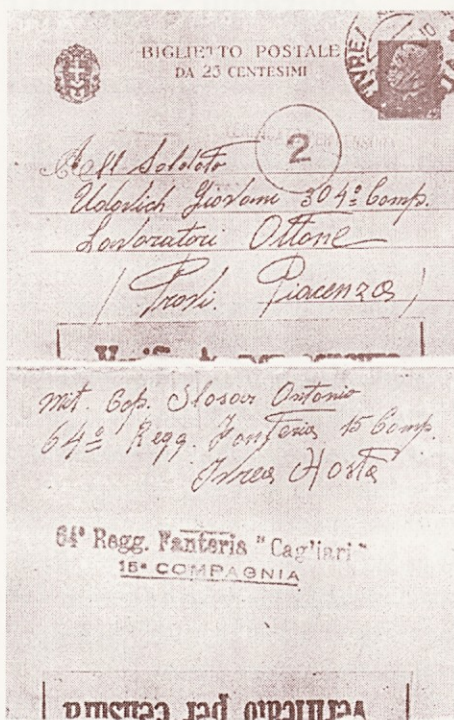 BIGLIETTO POSTALE
DA 25 CENTESIMI
IVREA
10
2
All Soldato
Udovich Giovanni 304ª Comp.
Lavoratori Ottone
(Provi. Piacenza)
Verificato per censura
mit. Cap. Slosar Antonio
64º Regg. Fanteria 15 Comp.
Ivrea Aosta
64º Regg. Fanteria "Cagliari"
15ª COMPAGNIA
Verificato per censura